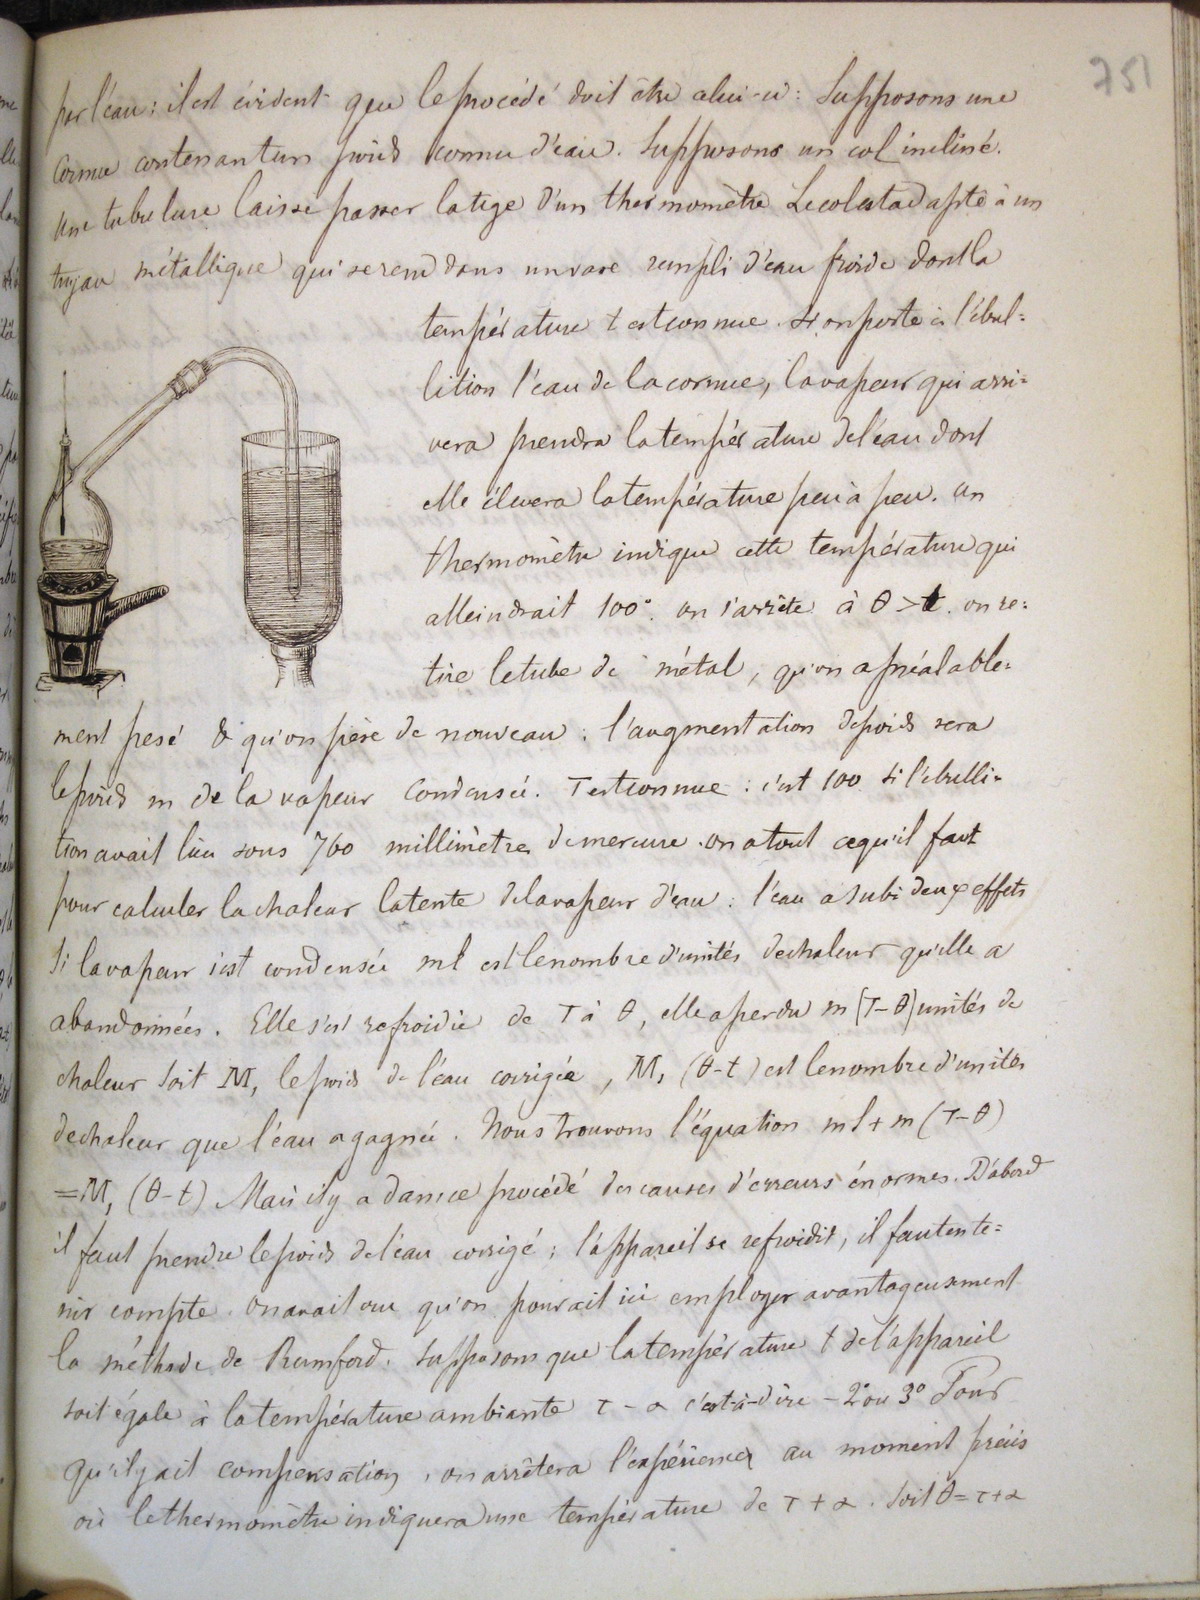 751
par l'eau : il est évident que le procédé doit être celui-ci : Supposons une
Cornue contenant un poids connu d'eau. Supposons un col incliné.
Une tubulure laisse passer la tige d'un thermomètre Le col est adapté à un
tuyau métallique qui se rend dans un vase rempli d'eau froide dont la
température t est connue. Si on porte à l'ébul=
lition l'eau de la cornue, la vapeur qui arri=
vera prendra la température de l'eau dont
elle élevera la température peu à peu. Un
thermomètre indique cette température qui
atteindrait 100°. on s'arrête à θ > t. on re=
tire le tube de métal, qu'on a préalable=
ment pesé & qu'on pèse de nouveau : l'augmentation de poids sera
le poids m de la vapeur Condensée. T est connue : c'est 100 si l'ébulli=
tion avait lieu sous 760 millimètres de mercure. on a tout ce qu'il faut
pour calculer la chaleur latente de la vapeur d'eau : l'eau a subi deux effets
Si la vapeur s'est condensée ml est le nombre d'unités de chaleur qu'elle a
abandonnées. Elle s'est refroidie de T à θ, elle a perdu m (T-θ) unités de
chaleur Soit M, le poids de l'eau corrigée, M, (θ-t) est le nombre d'unités
de chaleur que l'eau a gagnée. Nous trouvons l'équation ml + m (T-θ)
= M, (θ-t) Mais il y a dans ce procédé des causes d'erreurs énormes. D'abord
il faut prendre le poids de l'eau corrigé ; l'appareil se refroidit, il faut en te=
nir compte. On avait cru qu'on pouvait ici employer avantageusement
la méthode de Rumford. Supposons que la température t de l'appareil
soit égale à la température ambiante τ - α c'est-à-dire - 2° ou 3° Pour
qu'il y ait compensation, on arrêtera l'expérience au moment précis
où le thermomètre indiquera une température de τ + α. Soit θ = τ + α